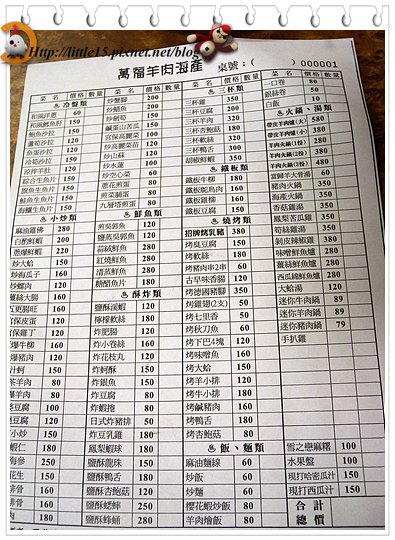 Http://little15.pixnet.net/blog
萬福羊肉海產 桌號：( ) 000001
菜名 價格 數量
冷盤類
和風洋蔥 60
和風鱈魚肝 150
鮑魚沙拉 150
蘆筍沙拉 120
魚蛋沙拉 120
冷筍沙拉 150
涼拌羊肚 120
綜合生魚片 150
旗魚生魚片 150
鮭魚生魚片 150
海鱺生魚片 150
小炒類
麻油雞佛 280
白酢蝦蝦 200
蔥爆蝦蝦 220
炒大蛤 150
炒海瓜子 160
炒螺肉 120
薑絲大腸 160
五更腸旺 160
宮保皮蛋 120
宮保雞丁 120
爆牛柳 160
爆豬肉 120
150
茶羊肉 80
爆羊肉 80
豆腐 100
豆腐 120
小炒 150
蝦仁 180
海參 250
花生 150
排骨 160
排骨 160
180
菜名 價格 數量
炒蟹腳 200
炒鱔魚 200
炒蒜苗 150
鹹蛋山苦瓜 150
宮保高麗菜 100
炒高麗菜苗 120
炒山蘇 120
炒水蓮 100
炒空心菜 60
蔥花煎蛋 80
煎菜脯蛋 80
九層塔煎蛋 80
鮮魚類
煎吳郭魚 120
鹽蒸吳郭魚 120
蒜絨鮮魚 280
紅燒鮮魚 280
清蒸鮮魚 280
糖醋魚片 180
酥炸類
鹽酥溪蝦 120
檸檬軟絲 180
炸肥腸 160
炸小卷絲 160
炸花枝丸 120
炸蚵酥 150
炸銀魚 150
炸豆腐 60
炸蝦捲 80
日式炸豬排 120
炸豆乳雞 180
鳳梨蝦球 180
鹽酥龍珠 150
鹽酥杏鮑菇 120
鹽酥蟋蟀 250
鹽酥蜂蛹 280
菜名 價格 數量
三杯類
三杯雞 350
三杯中卷 200
三杯羊肉 320
三杯杏鮑菇 180
三杯軟絲 320
三杯鴨舌 300
胡椒鮮蝦 350
鐵板類
鐵板牛柳 180
鐵板鴕鳥肉 160
鐵板雞柳 160
鐵板豆腐 150
燒烤類
招牌烤乳豬 380
烤臭豆腐 150
烤軟絲 180
烤豬肉串2串 60
古早味香腸 120
烤德國豬腳 350
烤雞翅(2支) 50
烤七里香 50
烤秋刀魚 60
烤下巴4塊 120
烤味噌魚 160
烤大蛤 150
烤羊小排 120
烤牛小排 180
烤鹹豬肉 160
烤鴨舌 180
烤杏鮑菇 80
飯、麵類
麻油麵線 60
炒飯 60
炒麵 60
櫻花蝦炒飯 80
羊肉燴飯 80
一口卷 80
銀絲卷 50
白飯 10
火鍋、湯類
帶皮羊肉爐(大) 580
帶皮羊肉爐(小) 380
羊肉火鍋(3份) 480
羊肉火鍋(2份) 380
羊肉火鍋(1份) 200
當歸羊大骨湯 60
豬肉火鍋 350
海產火鍋 350
香菇雞湯 350
鳳梨苦瓜雞 350
筍絲雞湯 350
剝皮辣椒雞 350
味噌鮮魚爐 280
薑絲鮮魚爐 280
西瓜綿鮮魚爐 280
大蛤湯 120
迷你牛肉鍋 89
迷你羊肉鍋 89
迷你豬肉鍋 79
手扒雞
雪之戀麻糬 100
水果盤 100
現打哈密瓜汁 150
現打西瓜汁 150
合計
總價